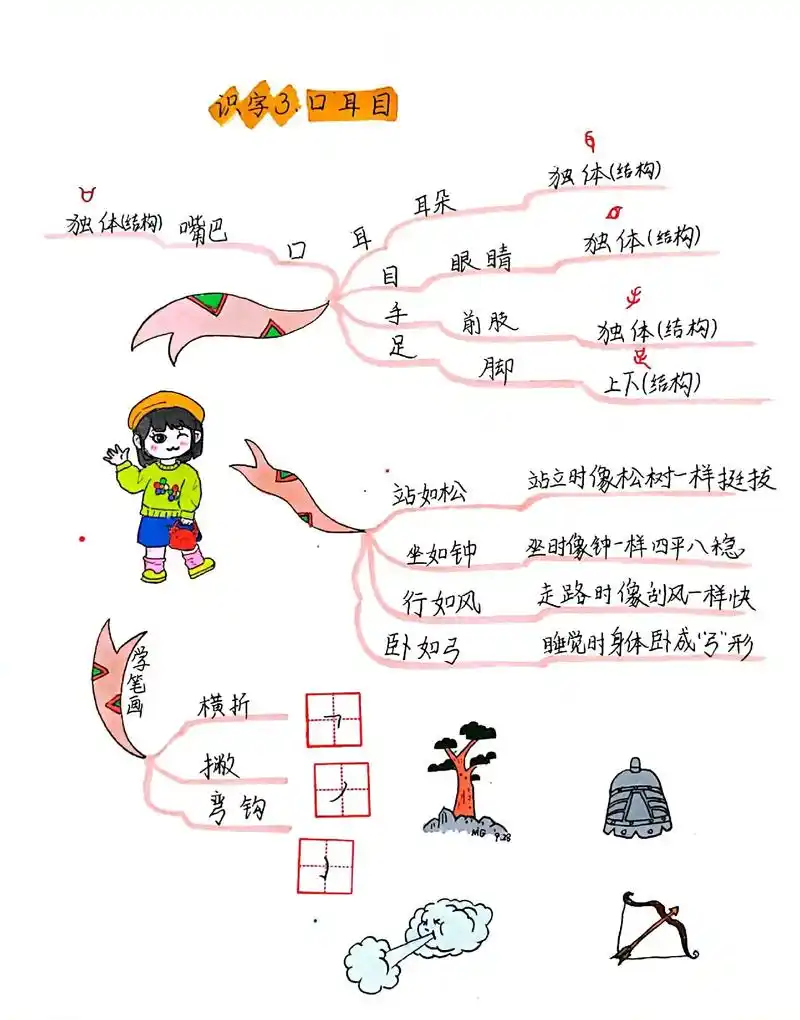 识字3.口耳目
口
嘴巴
独体(结构)
耳
耳朵
独体(结构)
目
眼睛
独体(结构)
手
前肢
独体(结构)
足
脚
上下(结构)
站如松
站立时像松树一样挺拔
坐如钟
坐时像钟一样四平八稳
行如风
走路时像刮风一样快
卧如弓
睡觉时身体卧成"弓"形
学笔画
横折
㇕
撇
丿
弯钩
㇁
MG 9.28